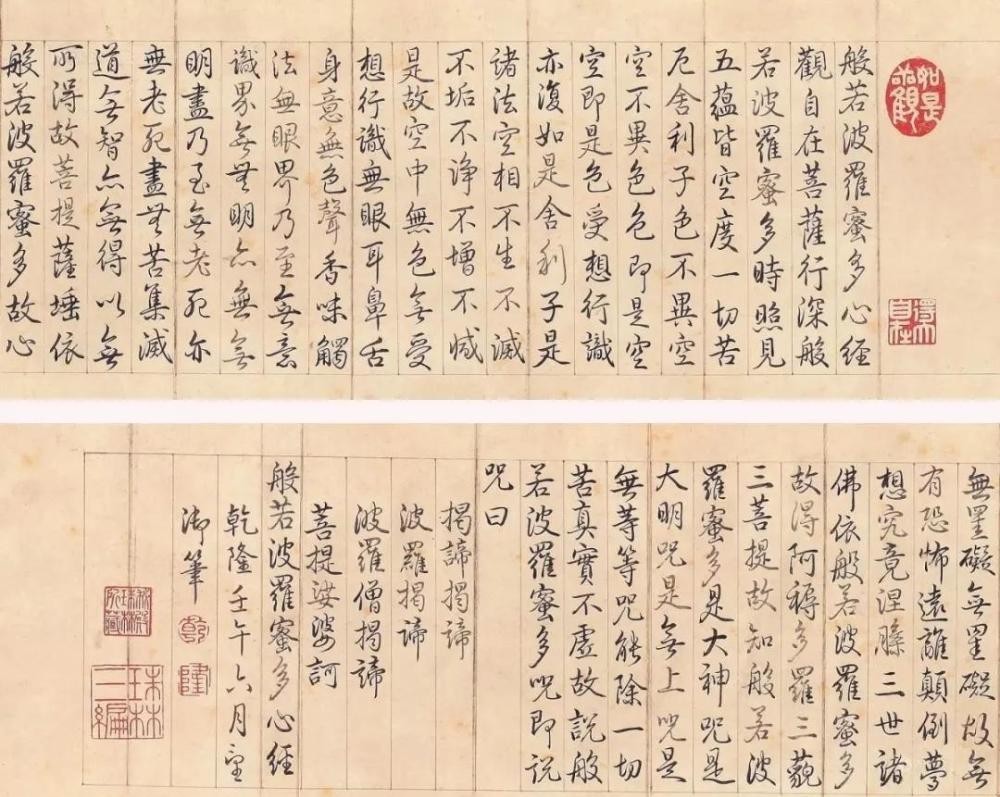 如是
得大自在
般若波羅蜜多心經
觀自在菩薩行深般
若波羅蜜多時照見
五蘊皆空度一切苦
厄舍利子色不異空
空不異色色即是空
空即是色受想行識
亦復如是舍利子是
諸法空相不生不滅
不垢不淨不增不減
是故空中無色無受
想行識無眼耳鼻舌
身意無色聲香味觸
法無眼界乃至無意
識界無無明亦無無
明盡乃至無老死亦
無老死盡無苦集滅
道無智亦無得以無
所得故菩提薩埵依
般若波羅蜜多故心
無罣礙無罣礙故無
有恐怖遠離顛倒夢
想究竟涅槃三世諸
佛依般若波羅蜜多
故得阿耨多羅三藐
三菩提故知般若波
羅蜜多是大神咒是
大明咒是無上咒是
無等等咒能除一切
苦真實不虛故說般
若波羅蜜多咒即說
咒曰
揭諦揭諦
波羅揭諦
波羅僧揭諦
菩提娑婆訶
般若波羅蜜多心經
乾隆壬午六月望
御筆
乾
隆
秘殿珠林所藏
珠林三編